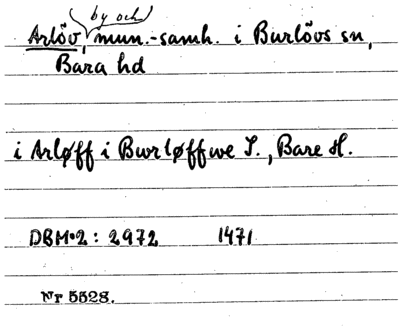 by och
Arlöv, mun.-samh. i Burlövs sn,
Bara hd
i Arløff i Burløffwe S., Bare H.
DBM•2: 2972 1471
Nr 5528.